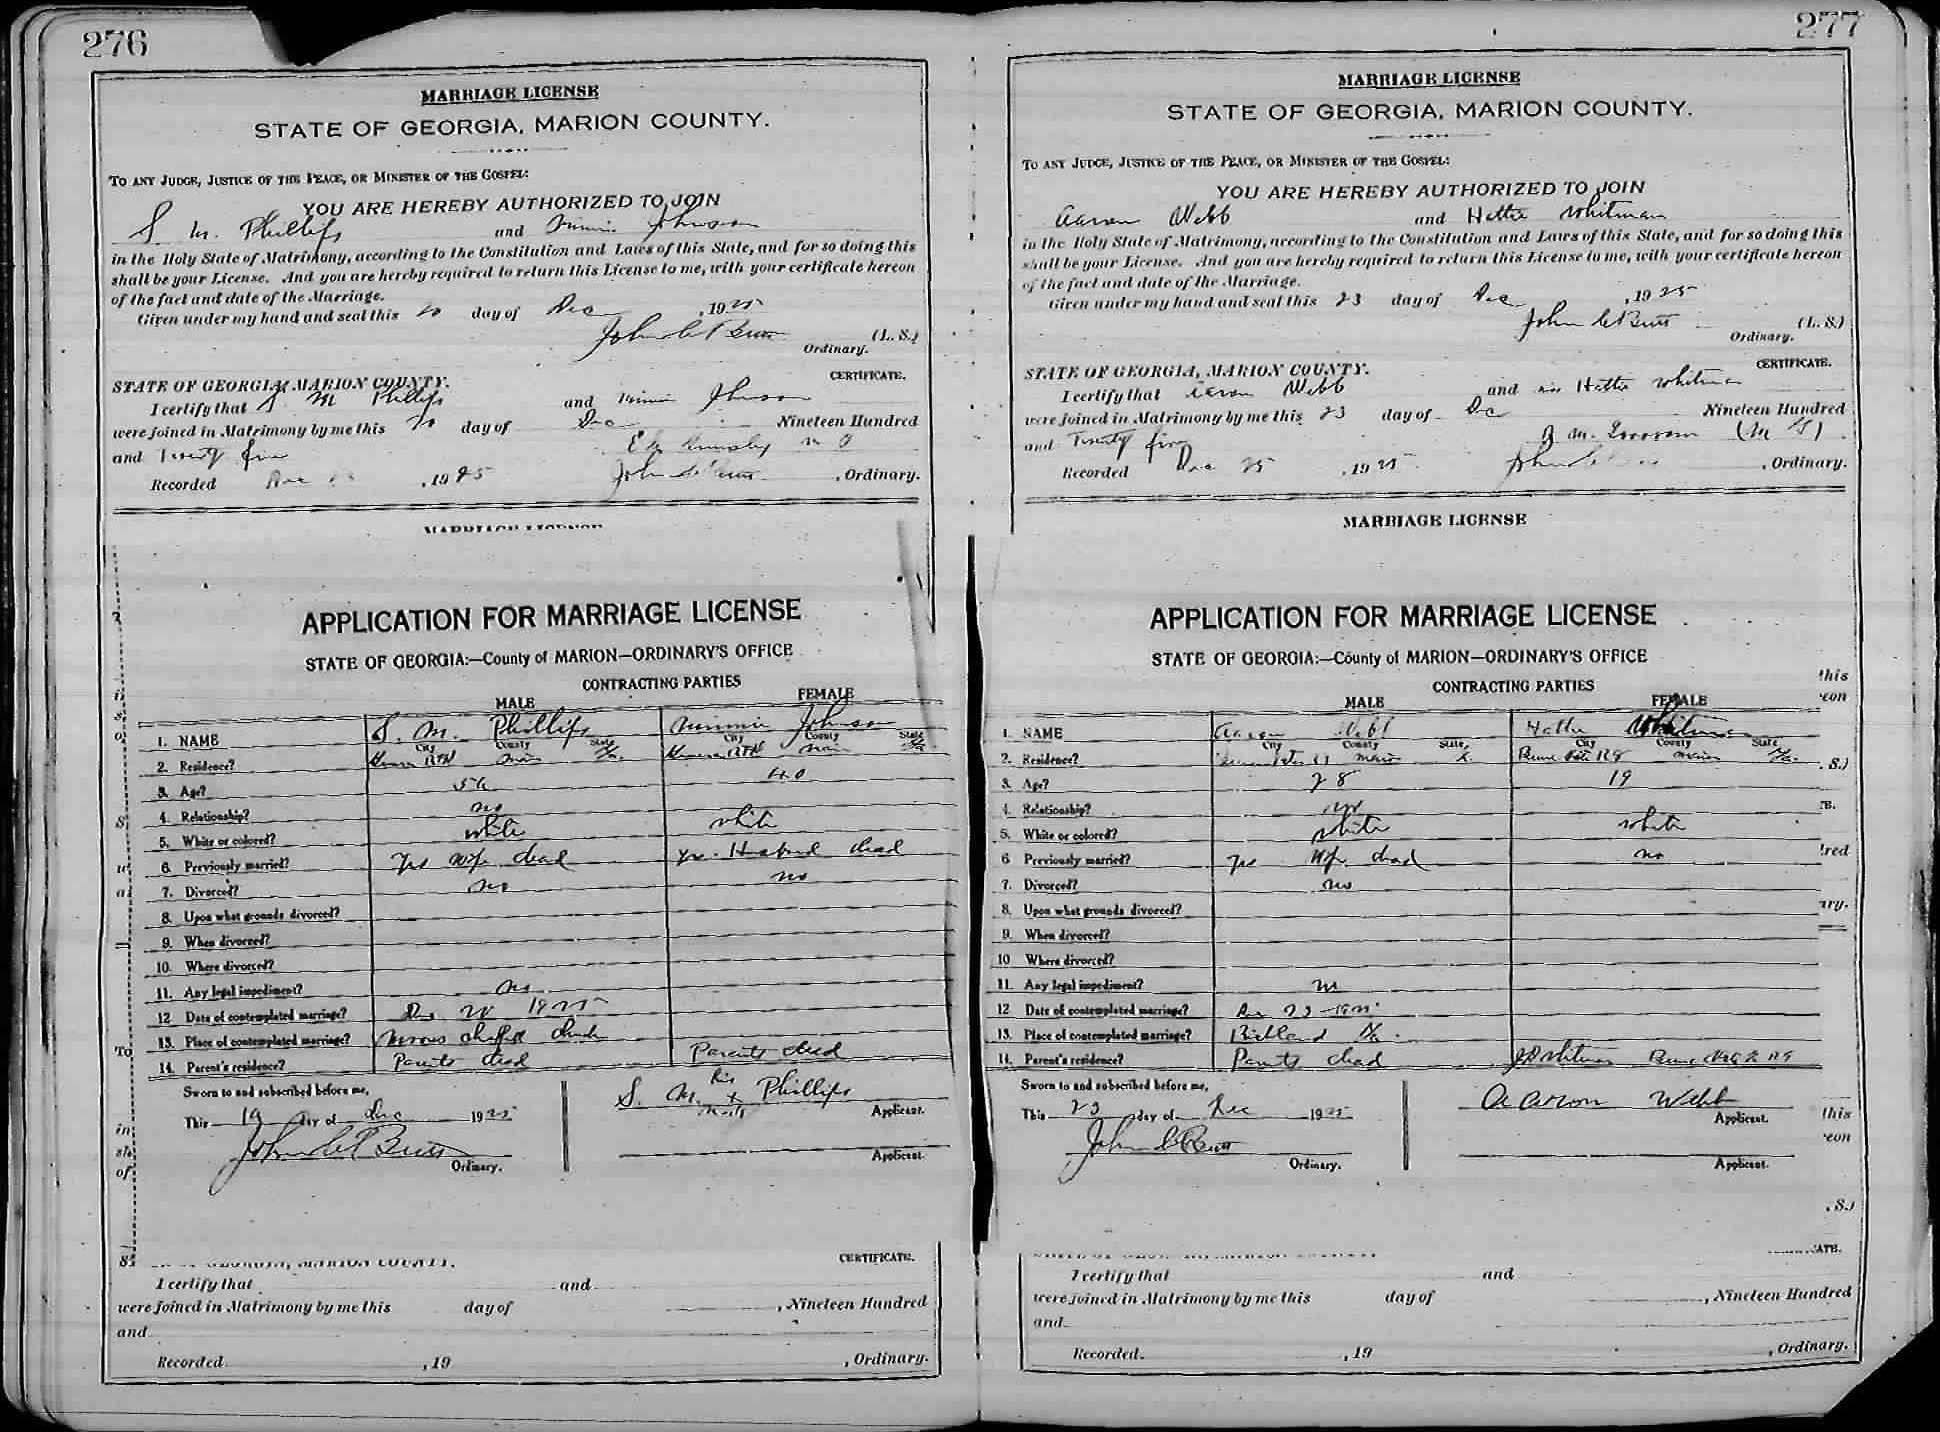 276
MARRIAGE LICENSE
STATE OF GEORGIA, MARION COUNTY.
TO ANY JUDGE, JUSTICE OF THE PEACE, OR MINISTER OF THE GOSPEL:
YOU ARE HEREBY AUTHORIZED TO JOIN
S. M. Phillips and Minnie Johnson
in the Holy State of Matrimony, according to the Constitution and Laws of this State, and for so doing this
shall be your License. And you are hereby required to return this License to me, with your certificate hereon
of the fact and date of the Marriage.
Given under my hand and seal this 20 day of Dec , 1925
John C Butt (L. S.)
Ordinary.
CERTIFICATE.
STATE OF GEORGIA, MARION COUNTY.
I certify that S. M Phillips and Minnie Johnson
were joined in Matrimony by me this 20 day of Dec Nineteen Hundred
and Twenty five
Recorded Dec , 1925 John C Butt , Ordinary.
MARRIAGE LICENSE
APPLICATION FOR MARRIAGE LICENSE
STATE OF GEORGIA:—County of MARION—ORDINARY'S OFFICE
CONTRACTING PARTIES
MALE FEMALE
1. NAME S. M. Phillips Minnie Johnson
City County State City County State
2. Residence?
3. Age? 56 40
4. Relationship? no
5. White or colored? white white
6. Previously married? Yes Wife dead yes Husband dead
7. Divorced? no no
8. Upon what grounds divorced?
9. When divorced?
10. Where divorced?
11. Any legal impediment? no
12. Date of contemplated marriage? Dec 20 1925
13. Place of contemplated marriage?
14. Parent's residence? Parents dead Parents dead
Sworn to and subscribed before me,
This 19 day of Dec 1925
John C Butt
Ordinary.
his
S. M. x Phillips
mark Applicant.
Applicant.
CERTIFICATE.
GEORGIA, MARION COUNTY.
I certify that and
were joined in Matrimony by me this day of , Nineteen Hundred
and
Recorded , 19 , Ordinary.
277
MARRIAGE LICENSE
STATE OF GEORGIA, MARION COUNTY.
TO ANY JUDGE, JUSTICE OF THE PEACE, OR MINISTER OF THE GOSPEL:
YOU ARE HEREBY AUTHORIZED TO JOIN
Aaron Webb and Hattie Whitman
in the Holy State of Matrimony, according to the Constitution and Laws of this State, and for so doing this
shall be your License. And you are hereby required to return this License to me, with your certificate hereon
of the fact and date of the Marriage.
Given under my hand and seal this 23 day of Dec , 1925
John C Butt (L. S.)
Ordinary.
CERTIFICATE.
STATE OF GEORGIA, MARION COUNTY.
I certify that Aaron Webb and Hattie Whitman
were joined in Matrimony by me this 23 day of Dec Nineteen Hundred
and Twenty five (M G)
Recorded Dec 25 , 1925 John C , Ordinary.
MARRIAGE LICENSE
APPLICATION FOR MARRIAGE LICENSE
STATE OF GEORGIA:—County of MARION—ORDINARY'S OFFICE
CONTRACTING PARTIES
MALE FEMALE
1. NAME Aaron Webb Hattie Whitman
City County State City County State
2. Residence? Marion Marion
3. Age? 28 19
4. Relationship? no
5. White or colored? white white
6 Previously married? yes Wife dead no
7. Divorced? no
8. Upon what grounds divorced?
9. When divorced?
10 Where divorced?
11. Any legal impediment? no
12. Date of contemplated marriage? Dec 23 1925
13. Place of contemplated marriage? Richland Ga.
14. Parent's residence? Parents dead Whitman
Sworn to and subscribed before me,
This 23 day of Dec 1925
John C Butt
Ordinary.
Aaron Webb
Applicant.
Applicant.
I certify that and
were joined in Matrimony by me this day of , Nineteen Hundred
and
Recorded. , 19 , Ordinary.